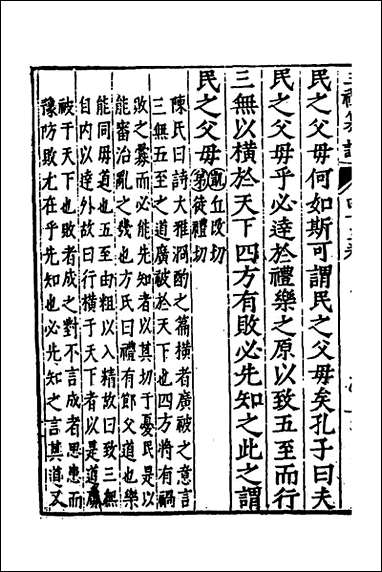 三禮纂註
民之父母何如斯可謂民之父母矣孔子曰夫
民之父母乎必達於禮樂之原以致五至而行
三無以橫於天下四方有敗必先知之此之謂
民之父母 凱丘改切 弟徒禮切
陳氏曰詩大雅泂酌之篇橫者廣被之意言
三無五至之道廣被於天下也四方將有禍
敗之釁而必能先知者以其切于憂民是以
能審治亂之幾也方氏曰禮有節父道也樂
能同母道也五至由粗以入精故曰致三無
自內以達外故曰行橫于天下者以是道廣
被于天下也敗者成之對不言成者思患而
豫防敗尤在乎先知也必先知之言其道又